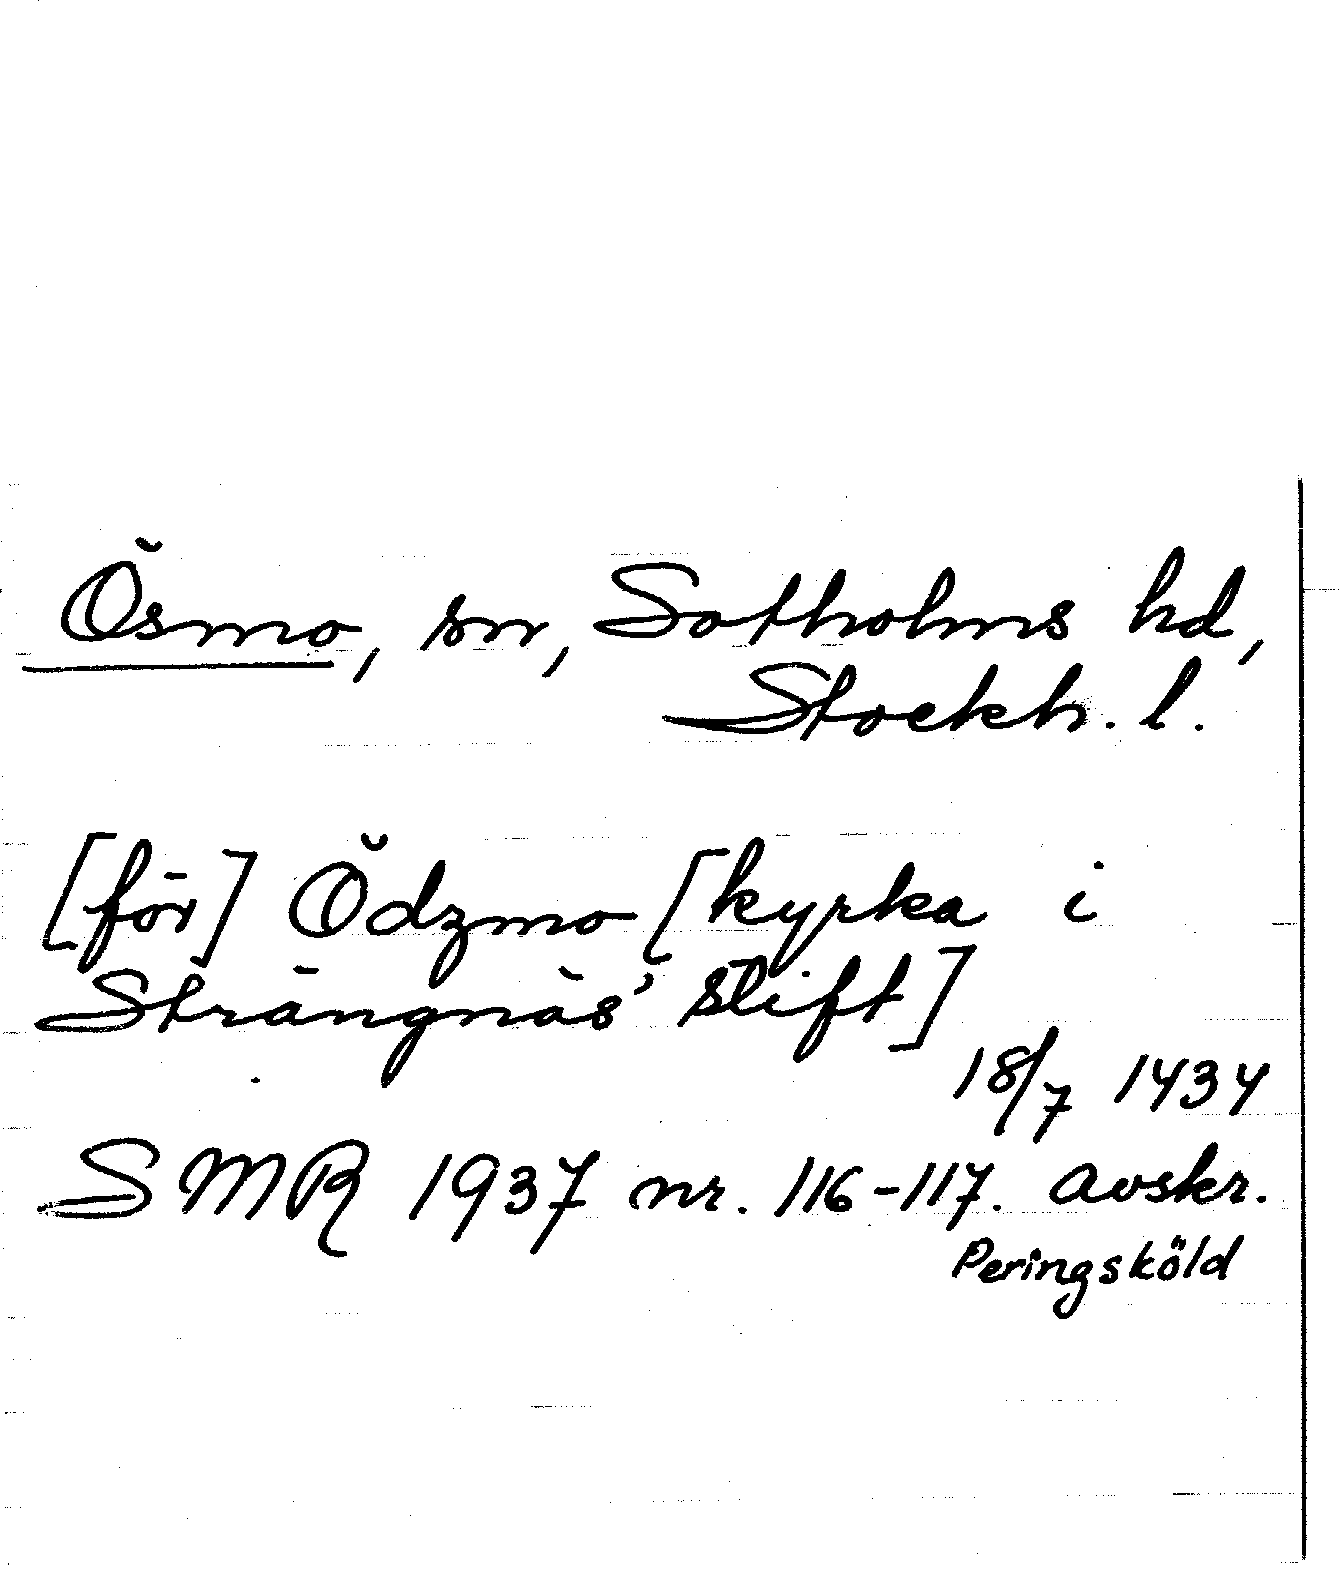 Ösmo, sn, Sotholms hd,
Stockh. l.
[för] Ödzmo [kyrka i
Strängnäs' stift]
18/7 1434
SMR 1937 nr. 116-117. avskr.
Peringsköld